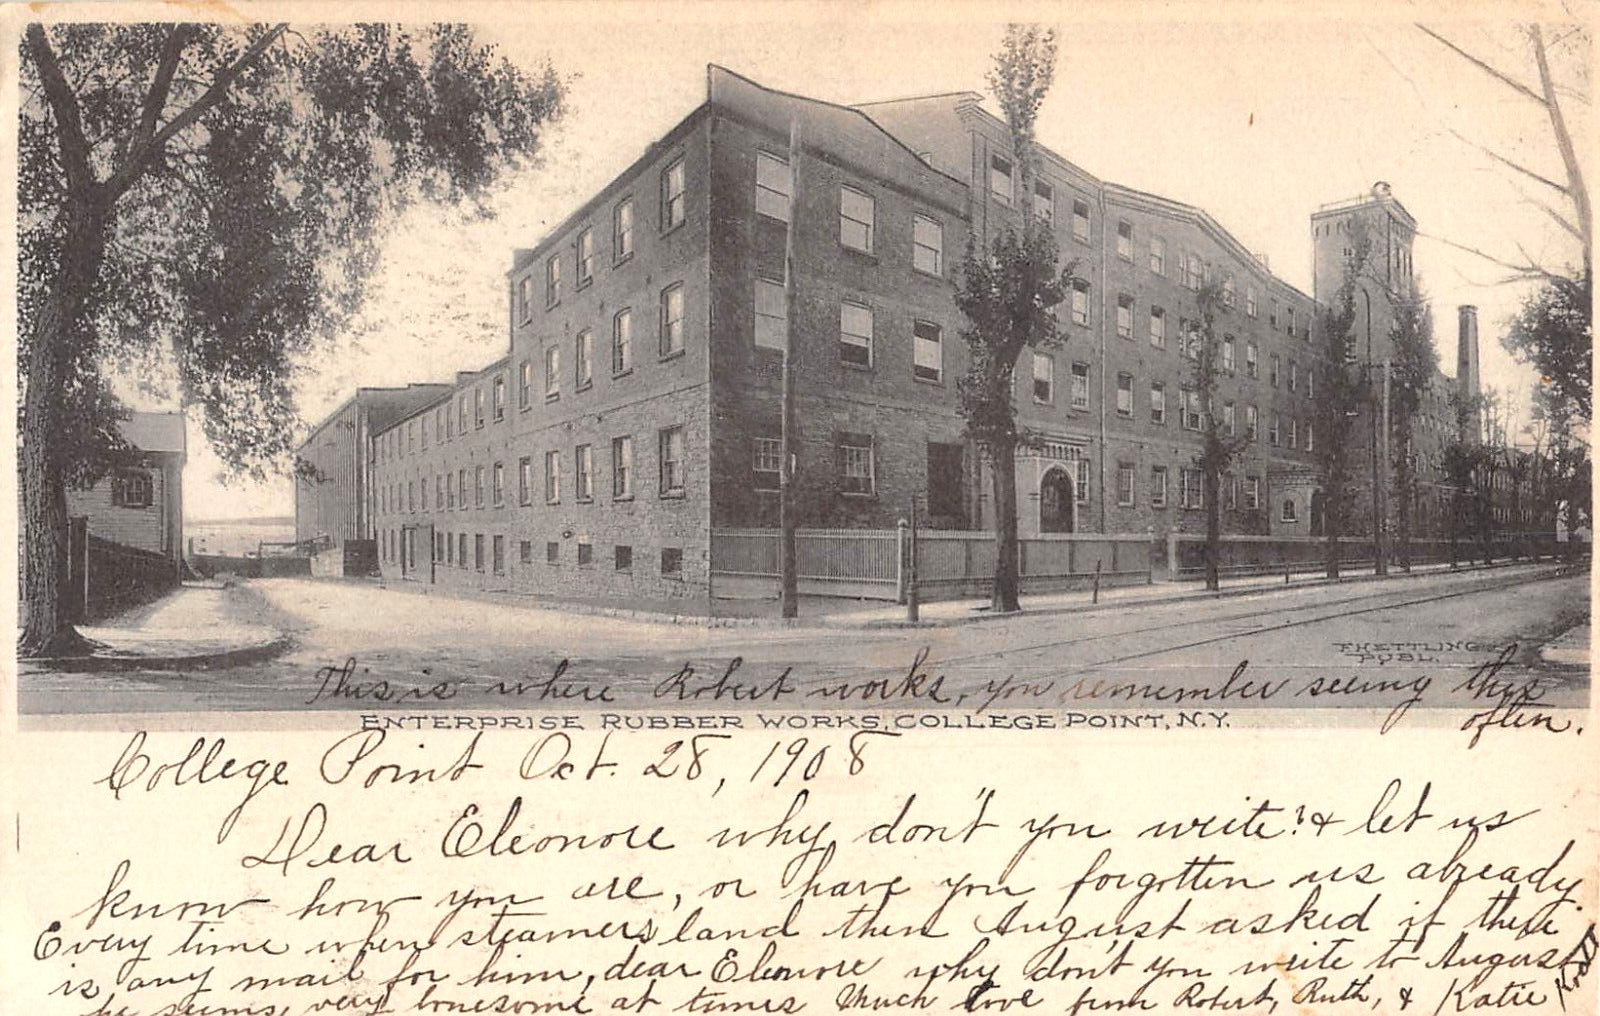 F.HETTLING
PUBL.
This is where Robert works, you remember seeing this
often.
ENTERPRISE RUBBER WORKS, COLLEGE POINT, N.Y.
College Point Oct. 28, 1908
Dear Eleonore why don't you write? & let us
know how you are, or have you forgotten us already.
Every time when steamers land then August asked if there
is any mail for him, dear Elenore why don't you write to August
he seems very lonesome at times Much love from Robert, Ruth, & Katie